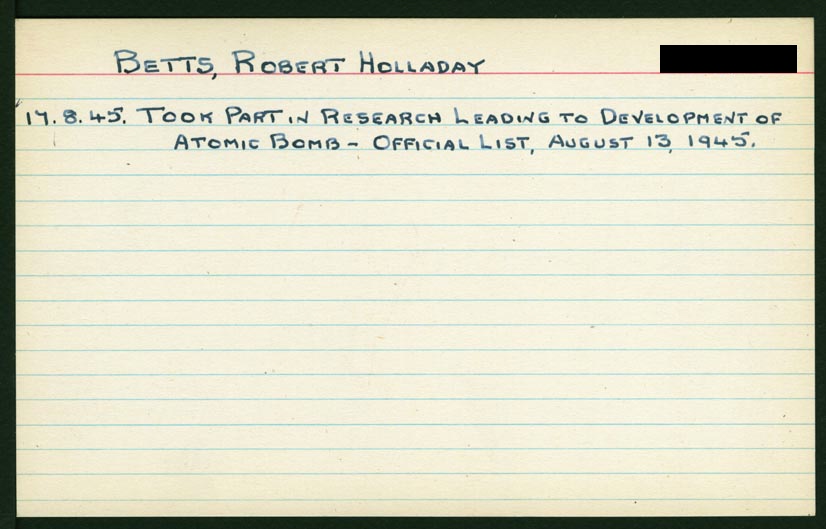 BETTS, ROBERT HOLLADAY
17.8.45. TOOK PART IN RESEARCH LEADING TO DEVELOPMENT OF
ATOMIC BOMB - OFFICIAL LIST, AUGUST 13, 1945.